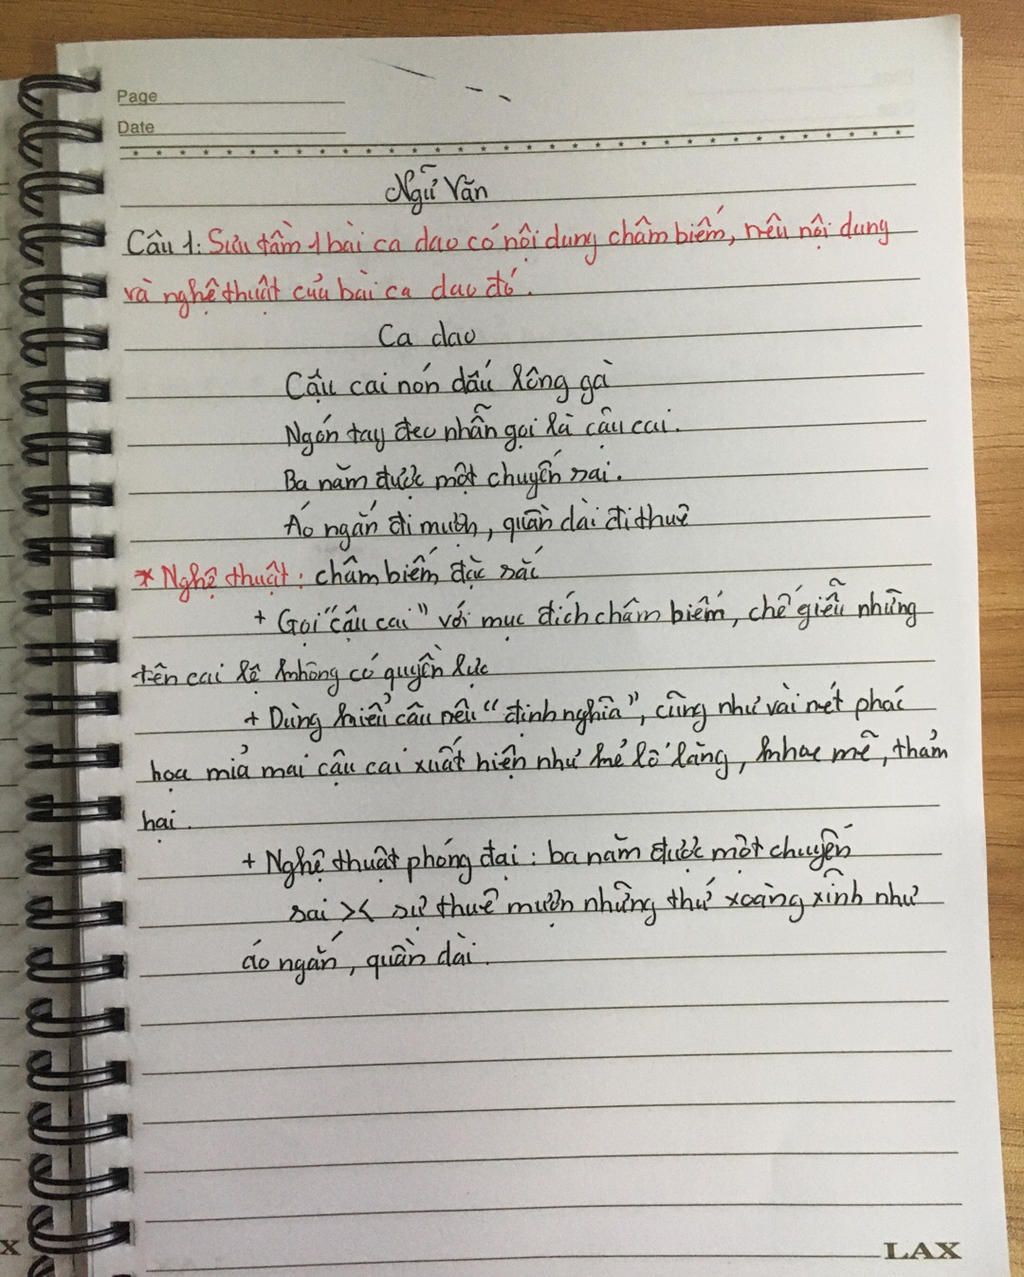 Page
Date
Ngữ Văn
Câu 1: Sưu tầm 1 bài ca dao có nội dung châm biếm, nêu nội dung
và nghệ thuật của bài ca dao đó.
Ca dao
Cậu cai nón dấu lông gà
Ngón tay đeo nhẫn gọi là cậu cai.
Ba năm được một chuyến sai.
Áo ngắn đi mượn, quần dài đi thuê
* Nghệ thuật: châm biếm đặc sắc
+ Gọi "cậu cai" với mục đích châm biếm, chế giễu những
tên cai lệ không có quyền lực
+ Dùng kiểu câu nêu "định nghĩa", cũng như vài nét phác
họa mỉa mai cậu cai xuất hiện như kẻ lố lăng, khoe mẽ, thảm
hại.
+ Nghệ thuật phóng đại: ba năm được một chuyến
sai >< sự thuê mượn những thứ xoàng xĩnh như
áo ngắn, quần dài.
LAX
X